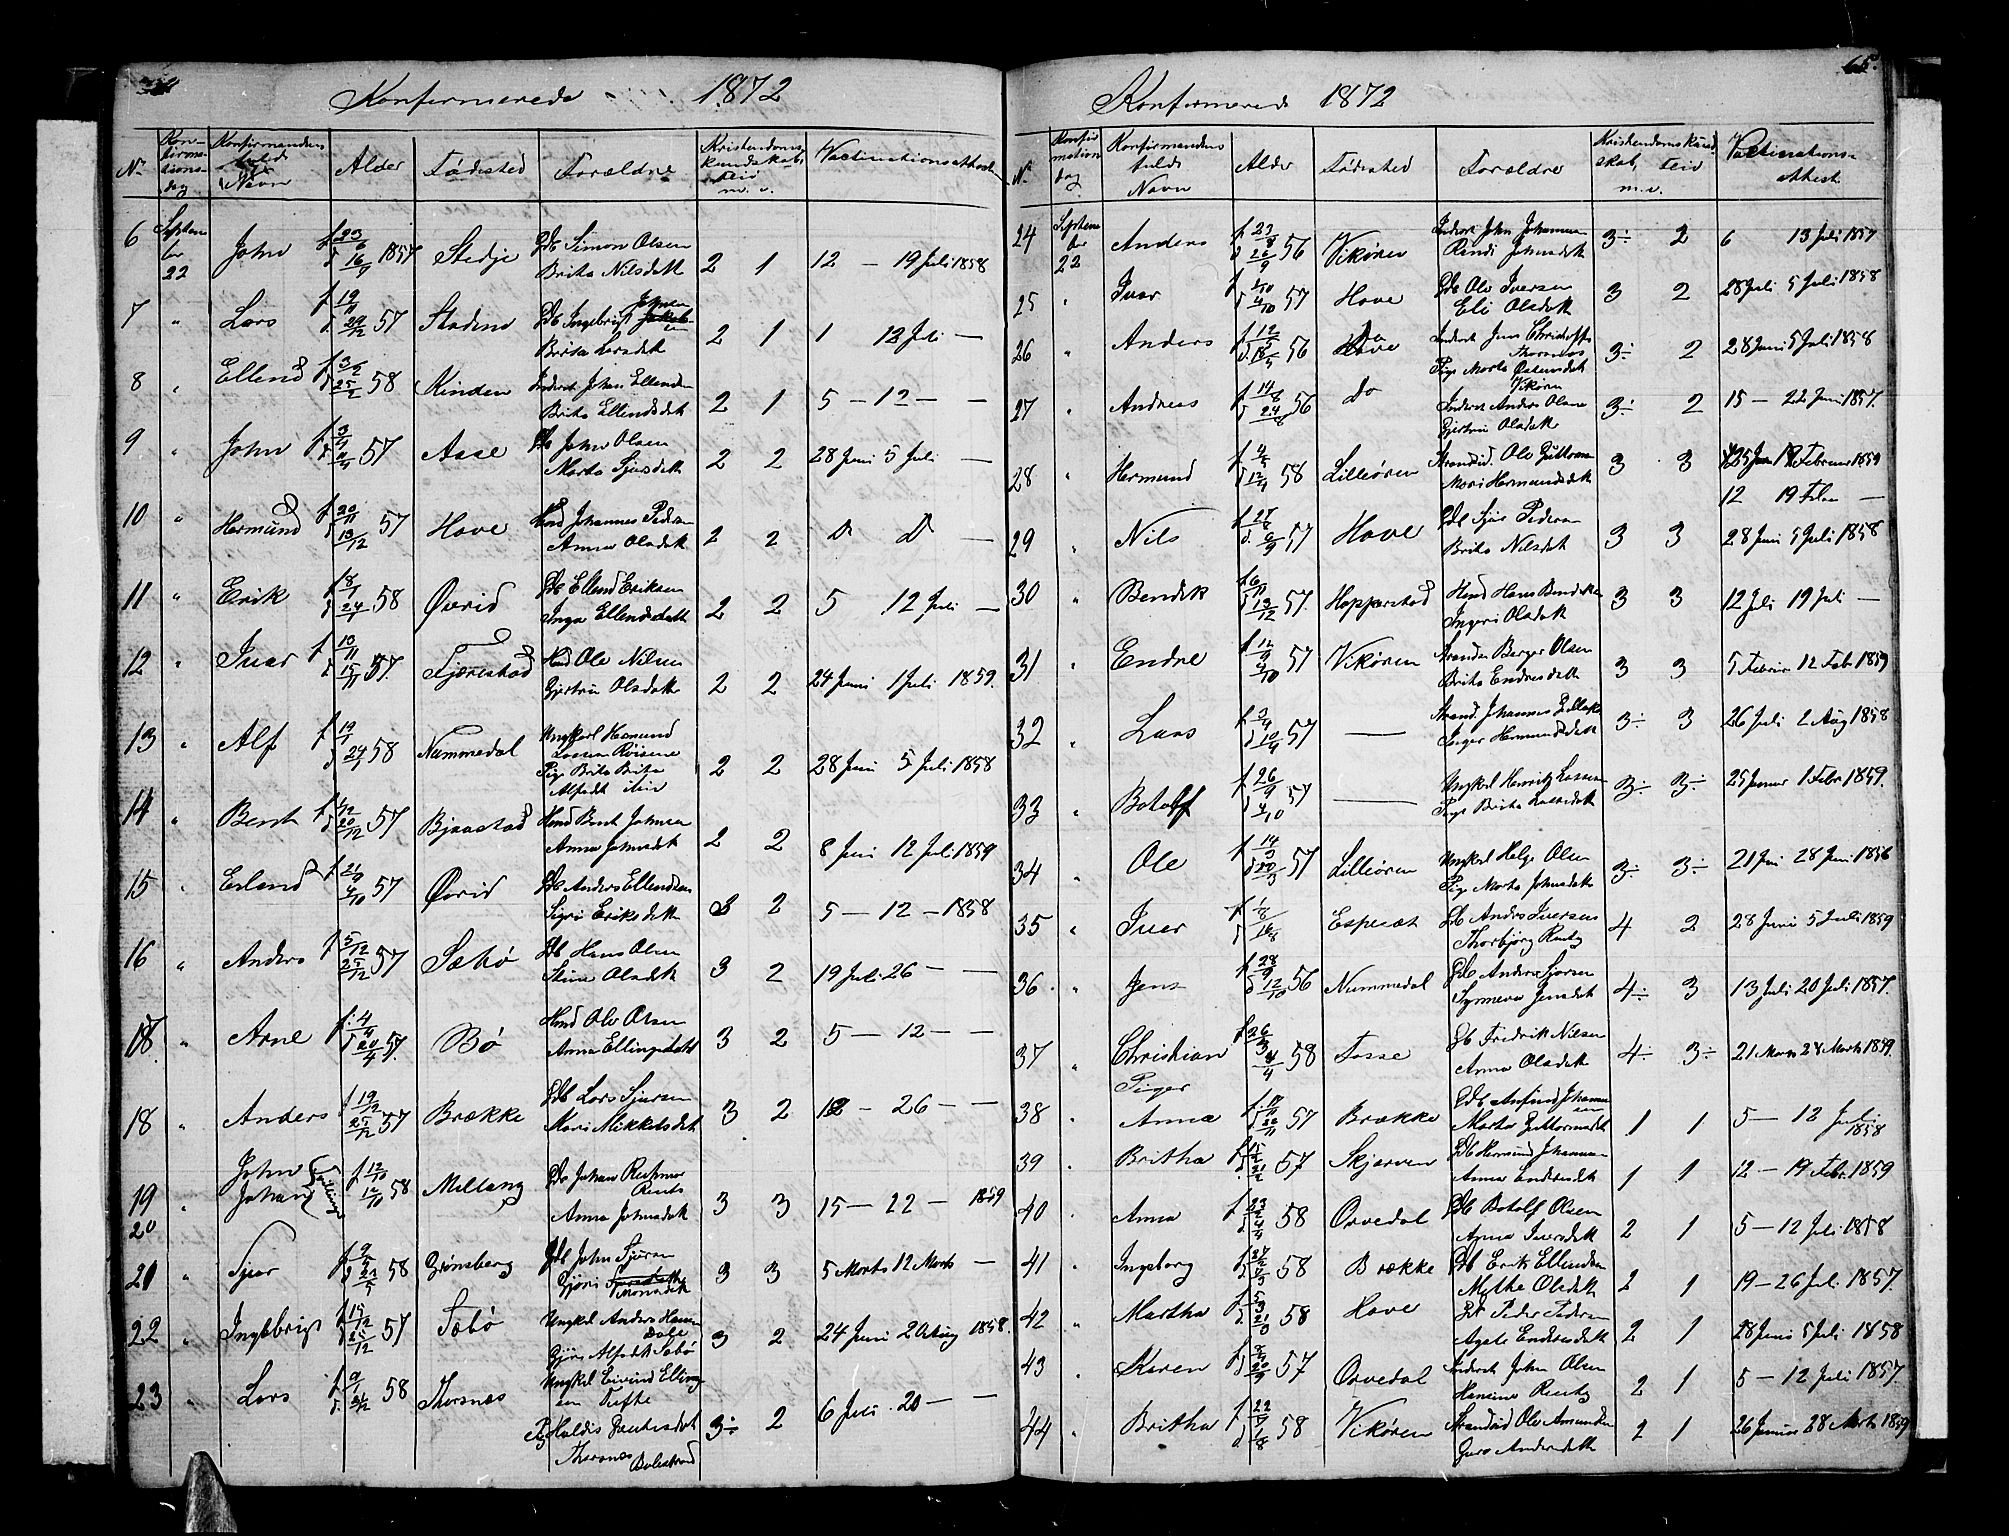 Konfirmerede 1872
No
Kon-
firma-
tions-
dag
Konfirmandens
fulde
Navn
Alder
Fødested
Forældre
Kristendoms-
kundskab,
Flid
m. v.
Vaccinationsattester
6 Septem
ber
22 John f 23/8 d 16/9 1857 Stedje Gdb Simon Olsen
Brita Nilsdatt 2 1 12 — 19 Juli 1858
7 " Lars d. 29/12 57 Stadene Gdb Ingebrigt Johnsen
Brita Larsdatt 2 1 1 12 Juli —
8 " Ellend 58 Kinden Inderst Johan Ellendsen
Brita Ellendsdatt 2 1 5 — 12 — —
9 " John 57 Aase Gdb John Olsen
Marta Sjursdatt 2 2 28 Juni 5 Juli —
10 " Hermund f 20/11 d 13/12 57 Hove Hmd Johannes Pedersen
Anna Olsdatt 2 2 Do Do —
11 " Erik f 8/1 d 24/1 58 Øvrid Gdb Ellend Eriksen
Inga Ellendsdatt 2 2 5 12 Juli —
12 " Ivar 57. Fjærestad Hmd Ole Nilsen
Gjertru Olsdatt 2 2 24 Juni 1 Juli 1859.
13 " Alf f 19/1 d 24/1 58 Nummedal Ungkarl Hermund
Larsen Røisene
Pige Brita
Alfsdt 2 2 28 Juni 5 Juli 1858
14 " Bent d 20/12 57 Bjaastad Hmd Bent Johnsen
Anna Johnsdatt 2 2 8 Juni 12 Juli 1859
15 " Erland 57 Øvrid Gdb Anders Ellendsen
Sigri Eriksdatt 3 2 5 — 12 — 1858
16 " Anders f 5/12 25/12 57 Sæbø Gdb Hans Olsen
Stina Olsdatt 3 2 19 Juli 26 — —
17 " Arne f. 4/4 d 20/4 57. Bø Hmd Ole Olsen
Anna Ellingsdatt 3 2 5 — 12 — —
18 " Anders f 19/12 d 25/12 57 Brække Gdb Lars Sjursen
Mari Mikkelsdt 3 2 — 26 — —
19 " John
20 Johan (Tvillinger f 12/10 58 Mellang Gdb Johan
Anna Johnsdatt 3 3 15 — 22 — 1859
21 " Sjur 58 Grønsberg Gdb John Sjursen
Gjøri Simonsdatt 3 3 5 Marts 12 Marts —
22 " Ingebrigt f 15/12 57 Sæbø Ungkarl Anders Hansen
Dale
Gjøri Alfsdt Sæbø 3 2 24 Juni 2 Aug 1858.
23 " Lars 58 Thorsnæs Ungkarl Eivind Elling-
sen Tufte
Pig Haldis Bentesdat
Thorsnæs Balestrand 3÷ 2 6 Juli 20 — —
65.
Konfirmerede 1872
No
Konfir
mation
dag
Konfirmandens
fulde
Navn
Alder
Fødested
Forældre
Kristendomskund-
skab, Flid
m. v.
Vaccinations-
attest
24 Septem
ber
22 Anders f 23/8 d 26/9 56 Vikøren Inderst John Johannesen
Randi Johnsdatt 3÷ 2 6 13 Juli 1857
25 " Ivar 57 Hove Gdb Ole Iversen
Eli Olsdatt 3 2 28 Juli 5 Juli 1858
26 " Anders 56 Do Inderst Jens Christoffs
Thorsnæs
Pige Marta Østensdatt
Vikøren 3÷ 2 28 Juni 5 Juli 1858
27 " Andreas f 14/8 d 24/8 56 Do Inderst Anders Olsen
Gjertru Olsdatt 3÷ 2 15 — 22 Juni 1857.
28 " Hermund 58 Lilleøren Strandsid. Ole Guttormsen
Mari Hermundsdatt 3 3 Februar 1859
12 19 Febr —
29 " Nils f 27/8 d. 6/9 57 Hove Gdb Sjur Pedersen
Brita Nilsdatt 3 3 28 Juni 5 Juli 1858
30 " Bendik f 6/11 d 13/12 57. Hopperstad Hmd Hans Bendiksen
Ingeri Olsdatt 3 3 12 Juli 19 Juli —
31 " Endre f 12/9 4/10 57 Vikøren Strandsi Berger Olsen
Brita Endresdatt 3 3 5 Februar 12 Feb 1859
32 " Lars f 3/9 d 10/9 57 — Strand. Johannes
Inger Hermundsdatt 3÷ 3 26 Juli 2 Aug 1858
33 " Botolf f 26/9 d 4/10 57 — Ungkarl Henrik Larsen
Pige Brita Larsdatt 3÷ 3÷ 25 Januar 1 Febr 1859.
34 " Ole f 14/3 d 20/3 57 Lilleøren Ungkarl Helge Olsen
Pige Marta Johnsdatt 3÷ 3÷ 21 Juni 28 Juni 1858
35 " Ivar f 1/8 d 16/8 Espesæt Gdb Anders Iversen
Thorbjørg 4 2 28 Juni 5 Juli 1859
36 " Jens f 28/9 d 12/10 56 Nummedal Gdb Anders Sjursen
Synneva Jensdatt 4÷ 3 13 Juli 20 Juli 1857.
37 " Christian f 26/3 4/4 58 Fosse Gdb Fredrik Nilsen
Anna Olsdatt 4÷ 3÷ 21 Marts 28 Marts 1859.
Piger
38 " Anna 57 Brække Gdb Anfind Johannes
sen
Marta Guttormsdatt 1 1 5 — 12 Juli
1858
39 " Britha 57 Skjerven Gdb Hermund Johannesen
Anna Endresdatt 1 1 12 — 19 Febr 1859
40 " Anna 58 Orvedal Gdb Botolf Olsen
Anna Iversdatt 2 1 5 — 12 Juli 1858
41 " Ingeborg 58 Brække Gdb Erik Ellendsen
Mythe Olsdatt 2 1 19 — 26 Juli 1857.
42 " Martha 58 Hove Gdb Peder Pedersen
Agate Endresdatt 2 1 28 Juni 5 Juli 1858
43 " Karen 57 Orvedal Inderst John Olsen
Hansine 2 1 5 — 12 Juli 1857.
44 " Britha 58 Vikøren Strandsid Ole Amundsen
Guro Andersdatt 2 1 26 Januar 28 Marts 1859